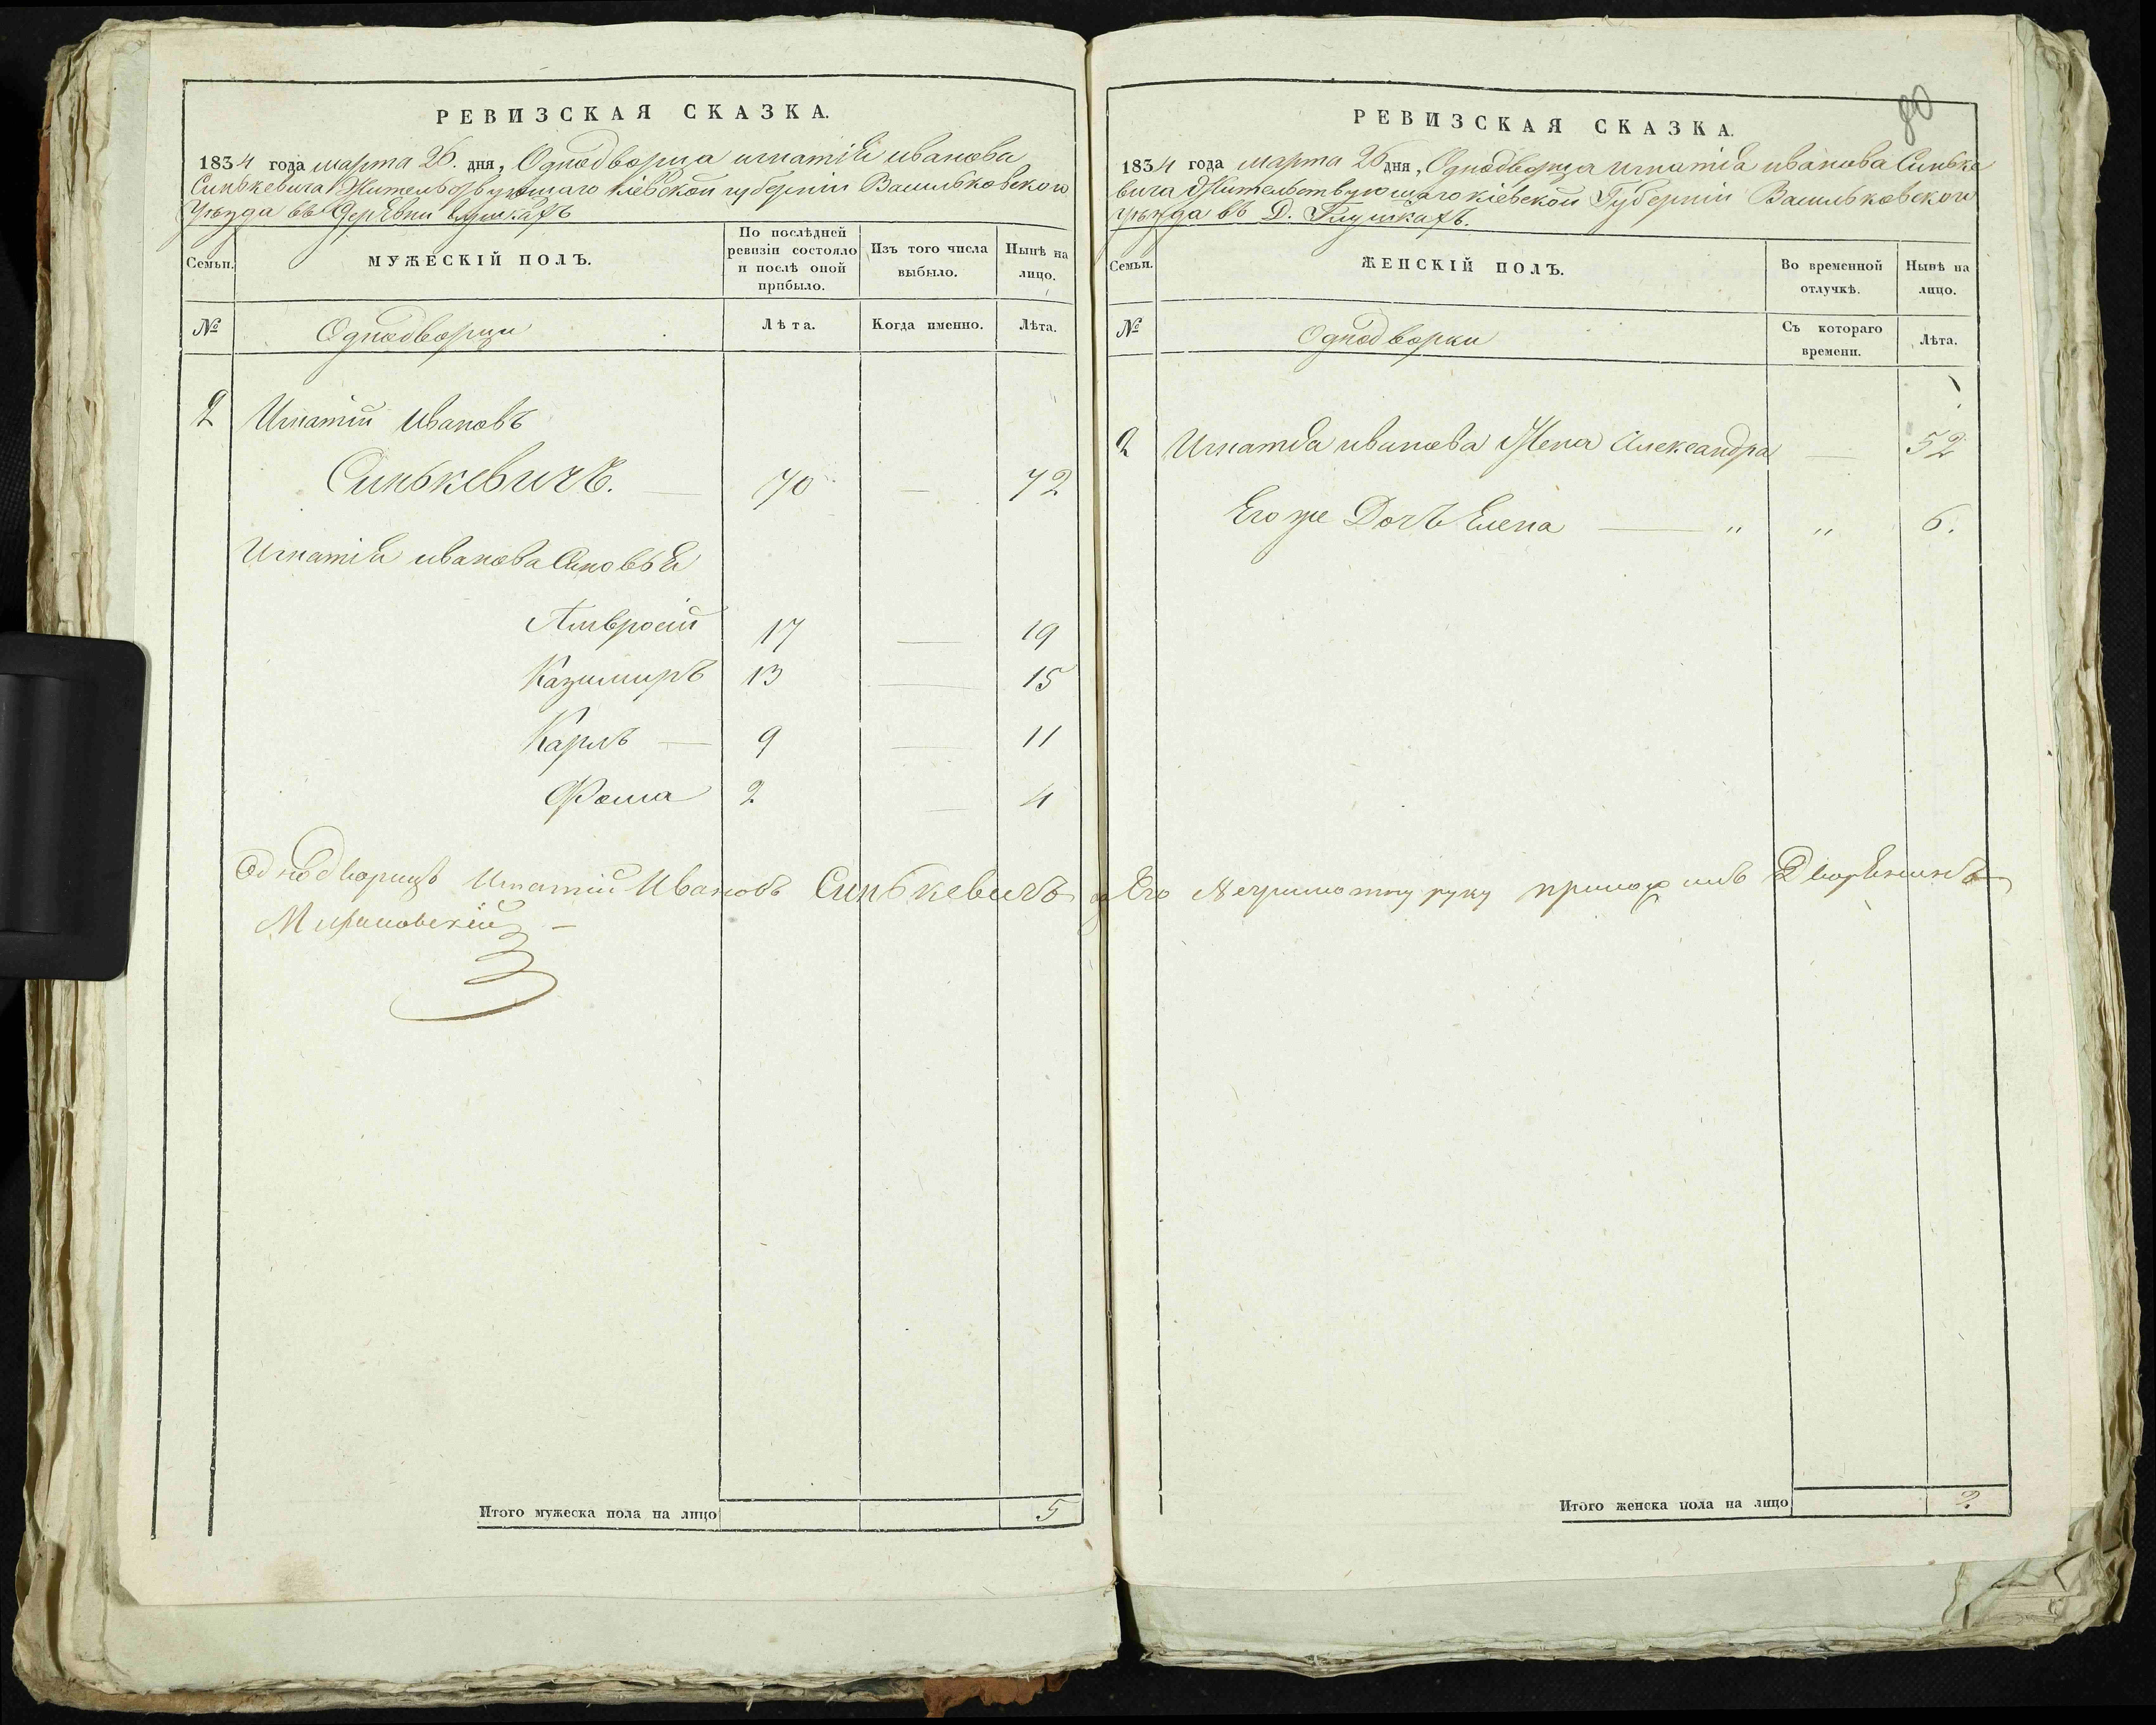 РЕВИЗСКАЯ СКАЗКА.
1834 года марта 26. дня, Однодворца игнатія иванова
Синькевича Жительствующаго кіевской губерніи Васильковского
Уѣзда въ деревни Глушкахъ
Семьи.
МУЖЕСКІЙ ПОЛЪ.
По послѣдней ревизіи состояло и послѣ оной прибыло.
Изъ того числа выбыло.
Нынѣ на лицо.
№ Однодворци Лѣта. Когда именно. Лѣта.
2 Игнатій ивановъ
Синькевичъ. — 70 — 72
Игнатія иванова Сыновья
Амвросій 17 — 19
Казимиръ 13 — 15
Карлъ — 9 — 11
Фома 2 — 4
Итого мужеска пола на лицо 5
РЕВИЗСКАЯ СКАЗКА.
80
1834 года марта 26 дня, Однодворца игнатія иванова Синьке
вича Жительствующаго кіевской Губерніи Васильковского
уѣзда въ Д. Глушкахъ.
Семьи.
ЖЕНСКІЙ ПОЛЪ.
Во временной отлучкѣ.
Нынѣ на лицо.
№ Однодворки Съ котораго времени. Лѣта.
2 Игнатія иванова Жена Александра — 52
Его же Дочь Елена — " " 6.
Однодворицъ Игнатій Ивановъ Синькевичъ за Его Неграмотну руку приложилъ Дворенинъ
Итого женска пола на лицо 2.